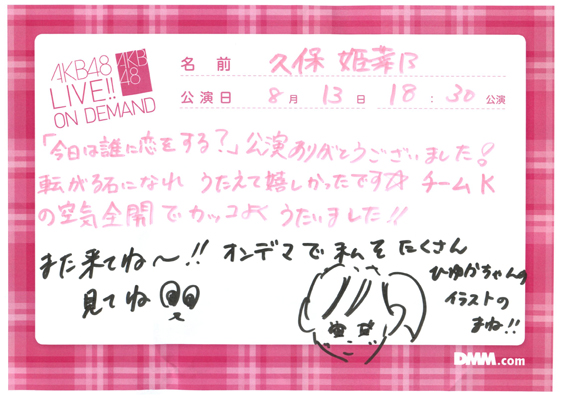 AKB48
LIVE!!
ON DEMAND
AKB
48
名前 久保 姫菜乃
公演日 8月 13日 18:30公演
「今日は誰に恋をする?」公演ありがとうございました!
転がる石になれ うたえて嬉しかったです☆ チームK
の空気全開でカッコよく うたいました!!
また来てね〜!! オンデマで私をたくさん
見てね
ひゆかちゃんの
イラストの
まね!!
DMM.com